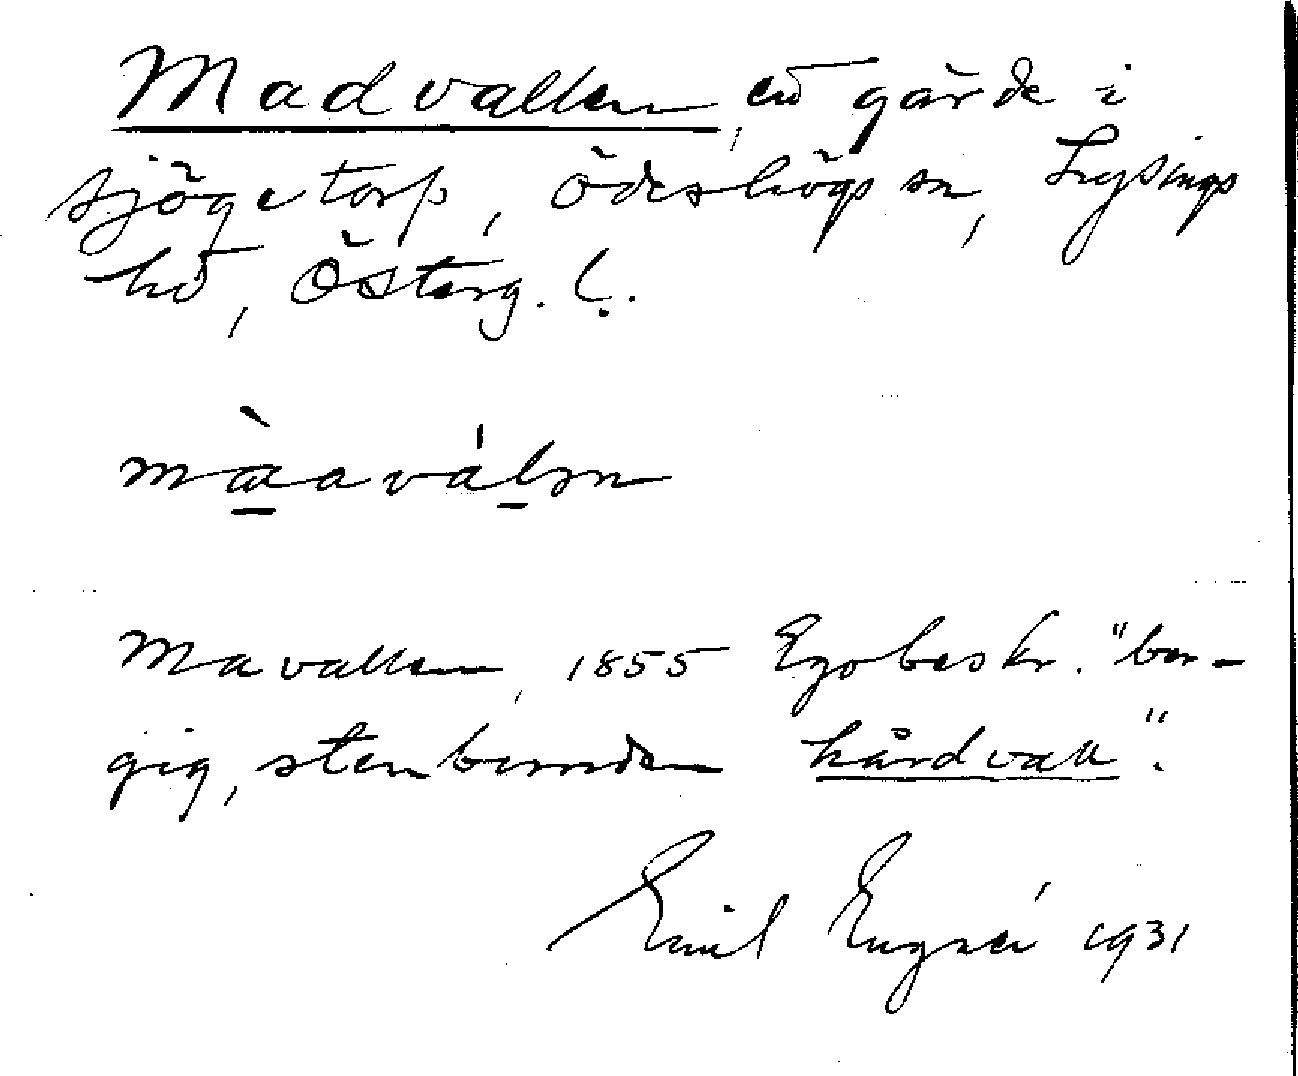 Madvallen, ett gärde i
Sjögetorp, Ödeshögs sn, Lysings
hd, Österg. l.
màavàlsn
Mavallen, 1855 Egobeskr. "ber-
gig, stenbunden hårdvall".
Emil Engnér 1931